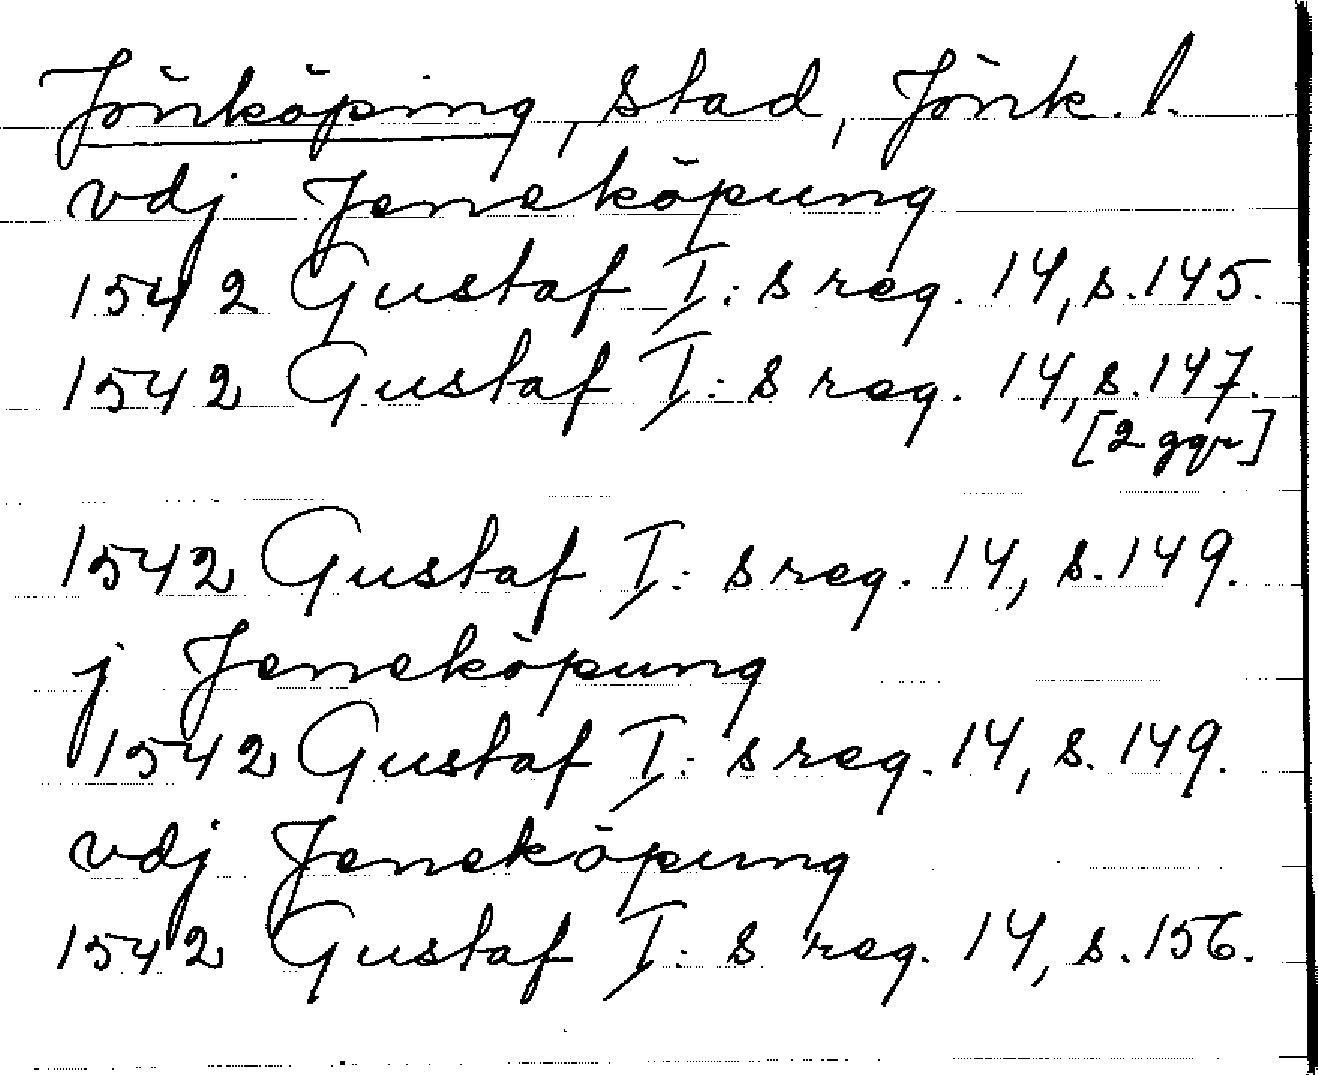 Jönköping, stad, Jönk. l.
vdj Jeneköpung
1542 Gustaf I: s reg. 14, s. 145.
1542 Gustaf I: s reg. 14, s. 147.
[2 ggr]
1542 Gustaf I: s reg. 14, s. 149.
j Jeneköpung
1542 Gustaf I: s reg. 14, s. 149.
vdj Jeneköpung
1542 Gustaf I: s reg. 14, s. 156.